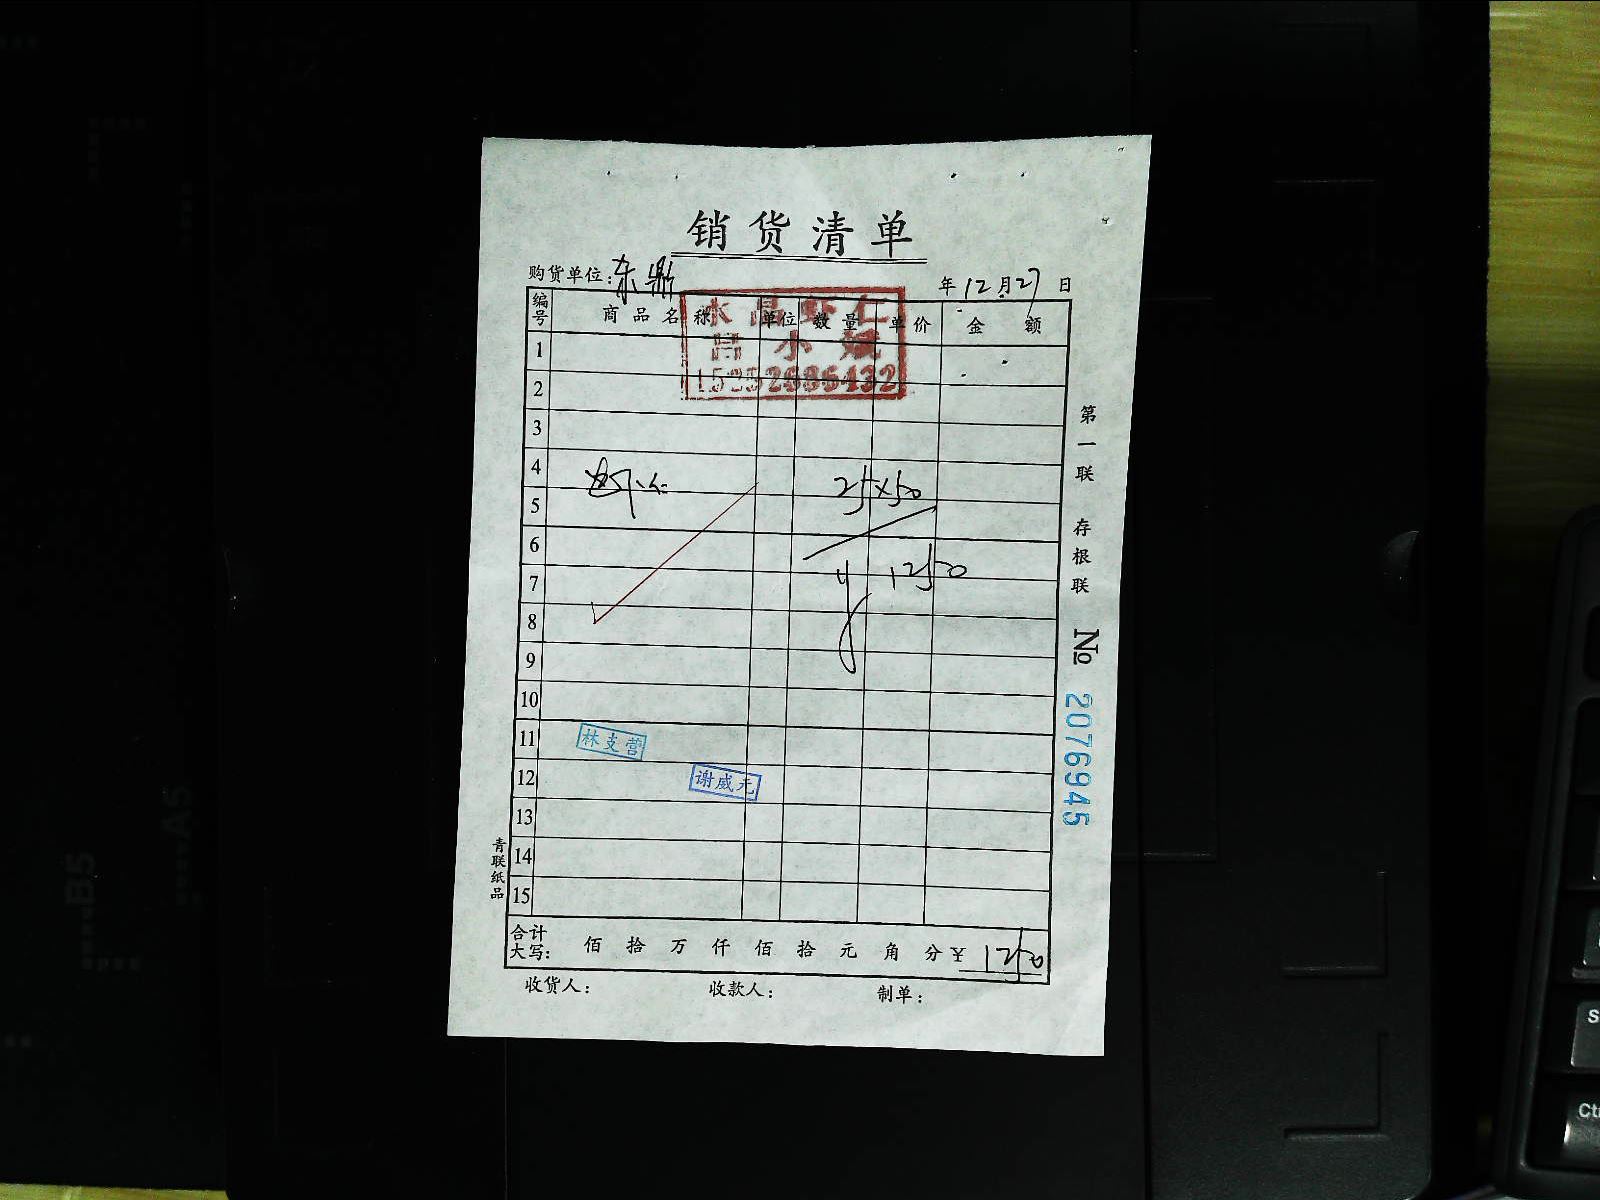 销货清单
购货单位:东鼎
年12月27日
编号 商品名称 单位 数量 单价 金额
水晶虾仁
吕小娥
1
2
3
4 虾仁 25×50
5
6
7 ¥1250
8
9
10
11 林支营
12 谢威元
13
14
15
合计大写: 佰 拾 万 仟 佰 拾 元 角 分 ¥ 1250
收货人: 收款人: 制单:
第一联 存根联 № 2076945
青联纸品
B5
A5